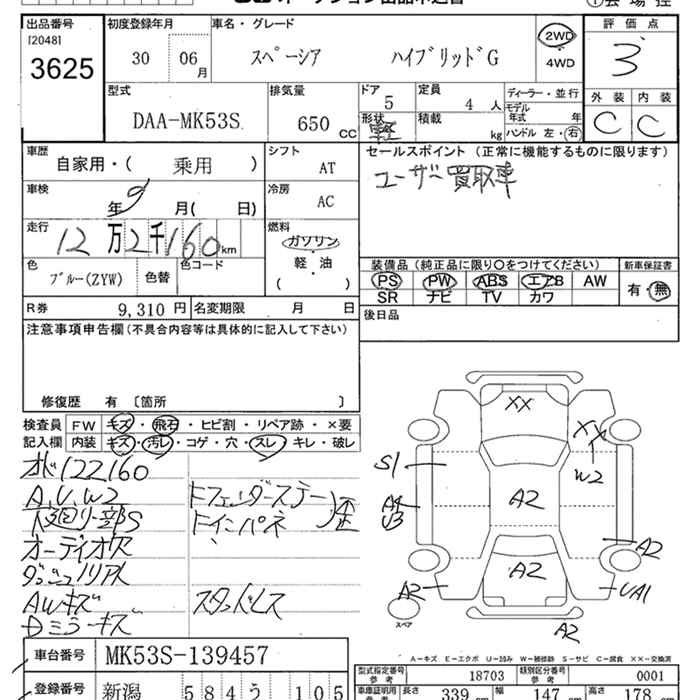 出品番号 初度登録年月 車名・グレード 評価点
[2048]
3625
30 06月 スペーシア ハイブリッドG 2WD 4WD 3
型式 排気量 ドア 定員 ディーラー・並行 外装 内装
DAA-MK53S 650 CC 5 4人 モデル年式 年 C C
形状 軽 積載 kg ハンドル 左・右
車歴 シフト セールスポイント (正常に機能するものに限ります)
自家用・( 乗用 ) AT ユーザー買取車
車検 冷房
年9月( 日) AC
走行 燃料
12万2千160km ガソリン
軽・油
( )
色 色コード 装備品 (純正品に限り○をつけてください) 新車保証書
ブルー(ZYW) 色替 PS PW ABS エアB AW 有・無
SR ナビ TV カワ
R券 9,310円 名変期限 月 日 後日品
注意事項申告欄(不具合内容等は具体的に記入して下さい)
修復歴 有 〔箇所 〕
検査員 FW キズ・飛石・ヒビ割・リペア跡・×要
記入欄 内装 キズ・汚レ・コゲ・穴・スレ・キレ・破レ
122160
A,U,W2
下廻り一部S
AWキズ
Dミラーキズ
XX
XX
S1
W2
A2
A4
U3
A2
A2
A2
UA1
スペア
A2
A－キズ E－エクボ U－凹み W－補修跡 S－サビ C－腐食 ××－交換済
車台番号 MK53S-139457
型式指定番号 参考 18703 類別区分番号 参考 0001
登録番号 新潟 584 う 105
車庫証明用 参考 長さ 339 幅 147 高さ 178